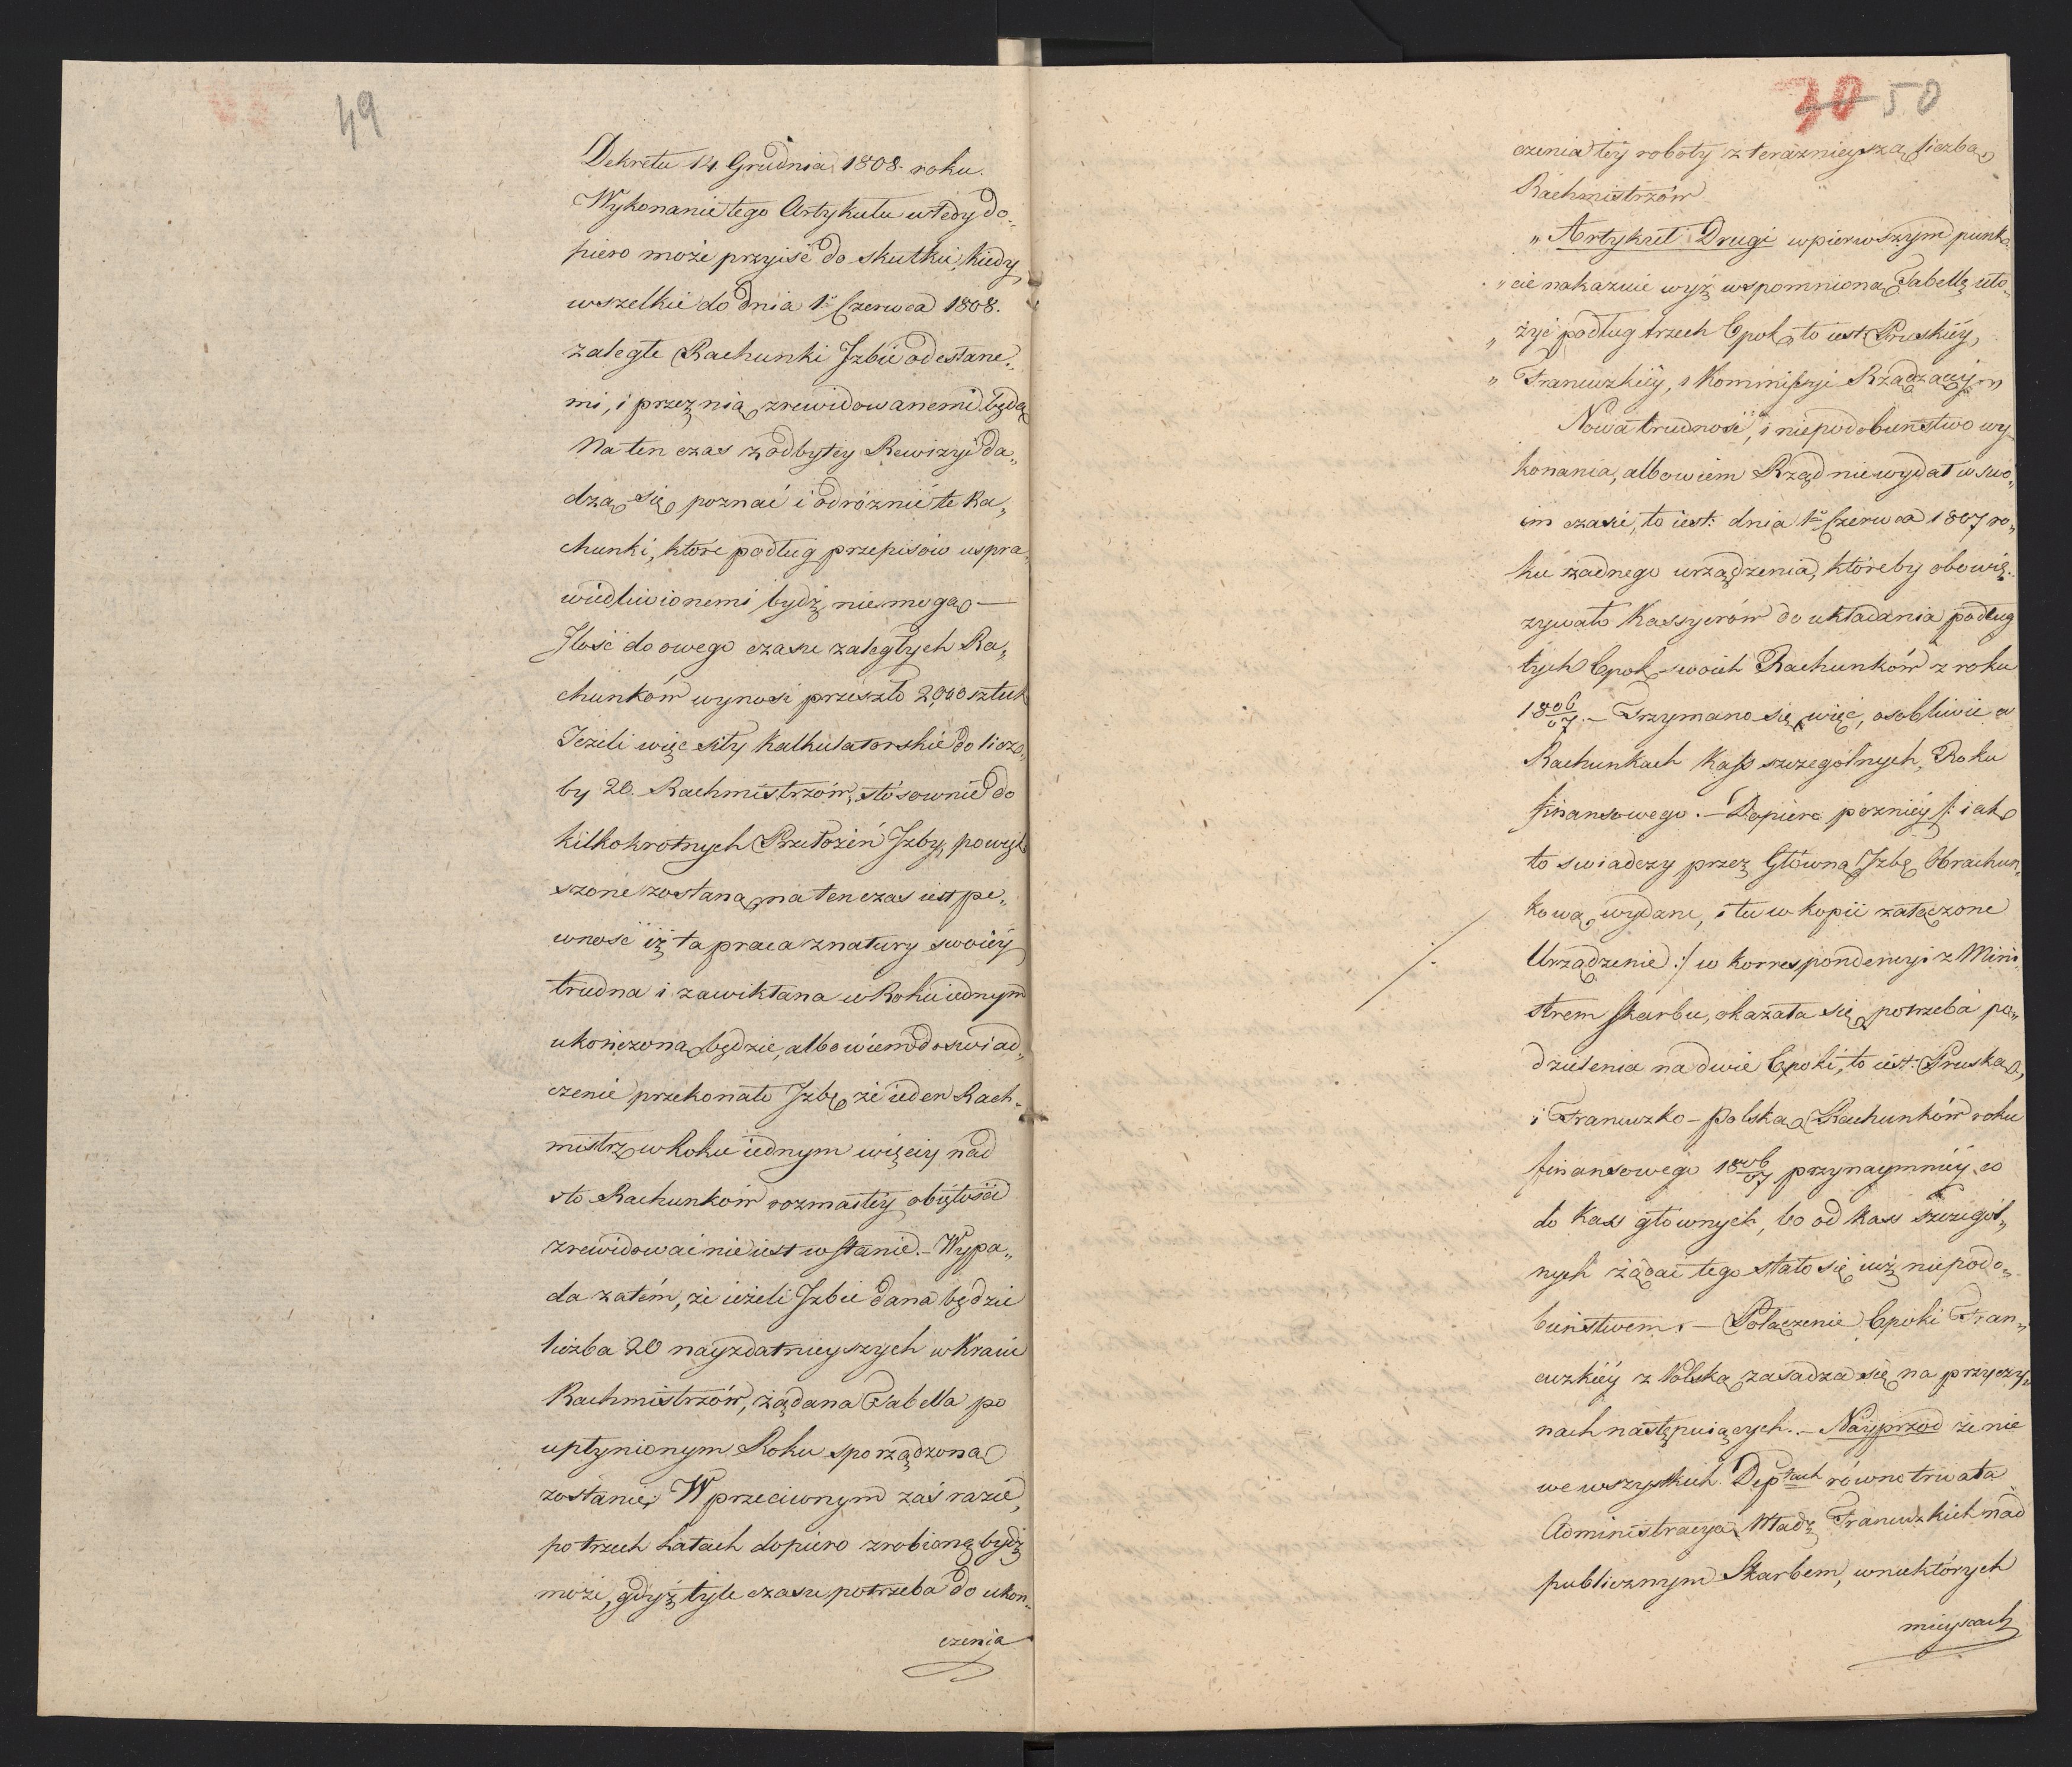 49
Dekretu 14 Grudnia 1808. roku.
Wykonanie tego Artykułu wtedy do„
piero może przyiść do skutku, kiedy
wszelkie do dnia 1º Czerwca 1808.
zaległe Rachunki Izbie odesłane„
mi, i przez nią zrewidowanemi będą
Na ten czas z odbytey Rewizyi da„
dzą się poznać i odróżnić te Ra„
chunki, które podług przepisów uspra„
wiedliwionemi bydź nie mogą —
Ilość do owego czasu zaległych Ra„
chunków wynosi przeszło 2,000 sztuk
Jeżeli więc siły Kalkulatorskie do licz„
by 20. Rachmistrzów, stósownie do
kilkokrotnych Przełożeń Izby, powięk
szone zostaną, na ten czas iest pe„
wność iż ta praca z natury swoiéy
trudna i zawikłana w Roku iednym
ukończoną będzie, albowiem doświad„
czenie przekonało Izbę, że ieden Rach„
mistrz w Roku iednym więcéy nad
sto Rachunków rozmaitéy obiętości
zrewidować nie iest w stanie. – Wypa„
da zatém, że ieżeli Izbie dana będzie
liczba 20 nayzdatnieyszych w Kraiu
Rachmistrzów, żądana Tabella po
upłynionym Roku sporządzoną
zostanie. W przeciwnym zaś razie,
po trzech Latach dopiero zrobioną bydź
może, gdyż tyle czasu potrzeba do ukoń„
czenia
30 50
czenia téy roboty z teraznieyszą liczbą
Rachmistrzów
„Artykuł Drugi w pierwszym punk„
„cie nakazuie wyż wspomnioną Tabellę uło„
„żyć podług trzech Epok, to iest: Pruskiéy,
„Francuzkiéy, i Kommissyi Rządzącéy.„
Nowa trudność, i niepodobieństwo wy„
konania, albowiem Rząd nie wydał w swo„
im czasie, to iest: dnia 1º Czerwca 1807 ro„
ku żadnego urządzenia, któreby obowią„
zywało Kassyerów do układania podług
tych Epok swoich Rachunków z roku
1806/07. – Trzymano się więc, osobliwie w
Rachunkach Kass szczególnych, Roku
finansowego. – Dopiero pozniéy /: iak
to swiadczy przez Główną Izbę Obrachun„
kową wydane, i tu w kopii załączone
Urządzenie :/ w korrespondencyi z Mini„
strem Skarbu, okazała się potrzeba po„
dzielenia na dwie Epoki, to iest: Pruską,
i Francuzko-Polską Rachunków roku
finansowego 1806/07 przynaymniéy co
do Kass głównych, bo od Kass szczegól„
nych żądać tego stało się iuż niepodo„
bieństwem. – Połączenie Epoki Fran„
cuzkiéy z Polską zasadza się na przyczy„
nach następuiących. – Nayprzód że nie
we wszystkich Deptach równo trwała
Administracya Władz Francuzkich nad
publicznym Skarbem, w niektórych
mieyscach